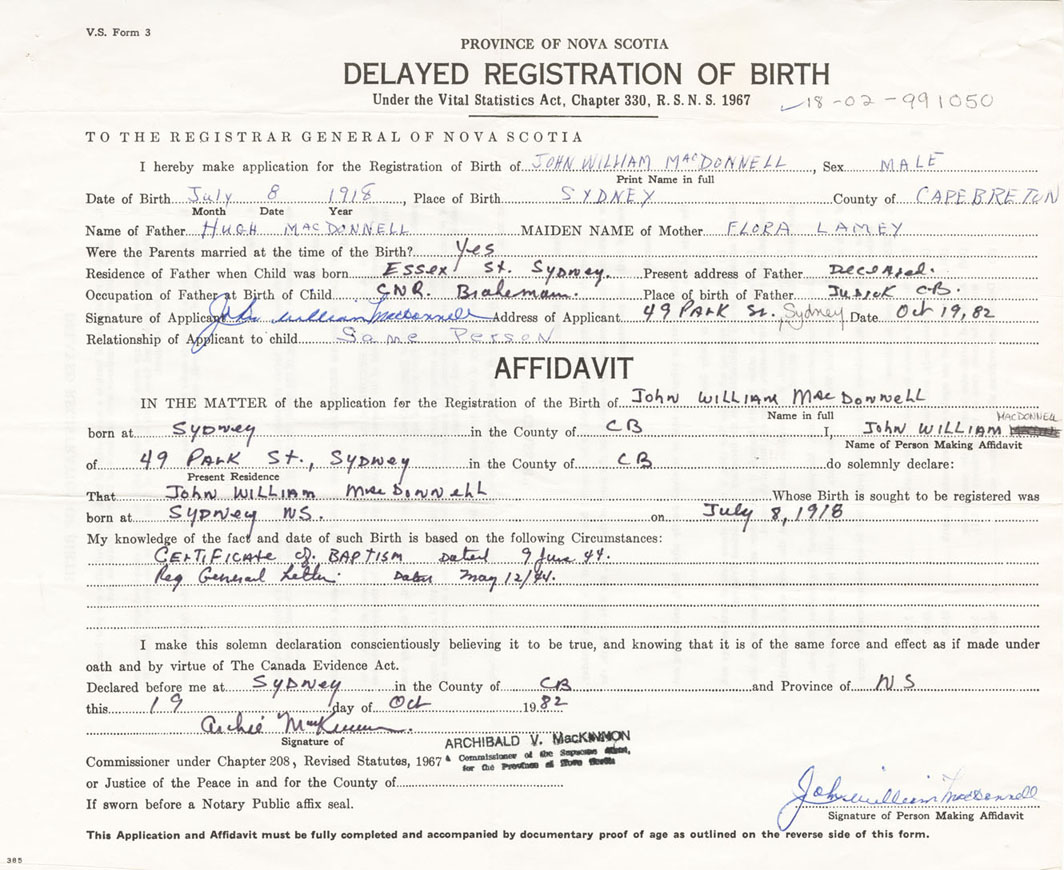 V.S. Form 3
PROVINCE OF NOVA SCOTIA
DELAYED REGISTRATION OF BIRTH
Under the Vital Statistics Act, Chapter 330, R. S. N. S. 1967 18-02-991050
TO THE REGISTRAR GENERAL OF NOVA SCOTIA
I hereby make application for the Registration of Birth of JOHN WILLIAM MACDONNELL, Sex MALE
Print Name in full
Date of Birth July 8 1918, Place of Birth SYDNEY County of CAPE BRETON
Month Date Year
Name of Father HUGH MACDONNELL MAIDEN NAME of Mother FLORA LAMEY
Were the Parents married at the time of the Birth? Yes
Residence of Father when Child was born Essex St. Sydney. Present address of Father Deceased.
Occupation of Father at Birth of Child CNR. Brakeman. Place of birth of Father CB.
Signature of Applicant John William MacDonnell Address of Applicant 49 Park St., Sydney Date Oct 19, 82
Relationship of Applicant to child Same Person
AFFIDAVIT
IN THE MATTER of the application for the Registration of the Birth of John William MacDonnell
Name in full MACDONNELL
born at Sydney in the County of CB I, John William
Name of Person Making Affidavit
of 49 Park St., Sydney in the County of CB do solemnly declare:
Present Residence
That John William MacDonnell Whose Birth is sought to be registered was
born at Sydney NS. on July 8, 1918
My knowledge of the fact and date of such Birth is based on the following Circumstances:
Certificate of Baptism Dated 9 June 44.
Reg General Letter. Dated May 12/44.
I make this solemn declaration conscientiously believing it to be true, and knowing that it is of the same force and effect as if made under
oath and by virtue of The Canada Evidence Act.
Declared before me at Sydney in the County of CB and Province of NS
this 19 day of Oct 1982
Archie MacKinnon.
Signature of ARCHIBALD V. MacKINNON
Commissioner under Chapter 208, Revised Statutes, 1967 A Commissioner of the Supreme Court,
for the Province of Nova Scotia
or Justice of the Peace in and for the County of
If sworn before a Notary Public affix seal.
John William MacDonnell
Signature of Person Making Affidavit
This Application and Affidavit must be fully completed and accompanied by documentary proof of age as outlined on the reverse side of this form.
385